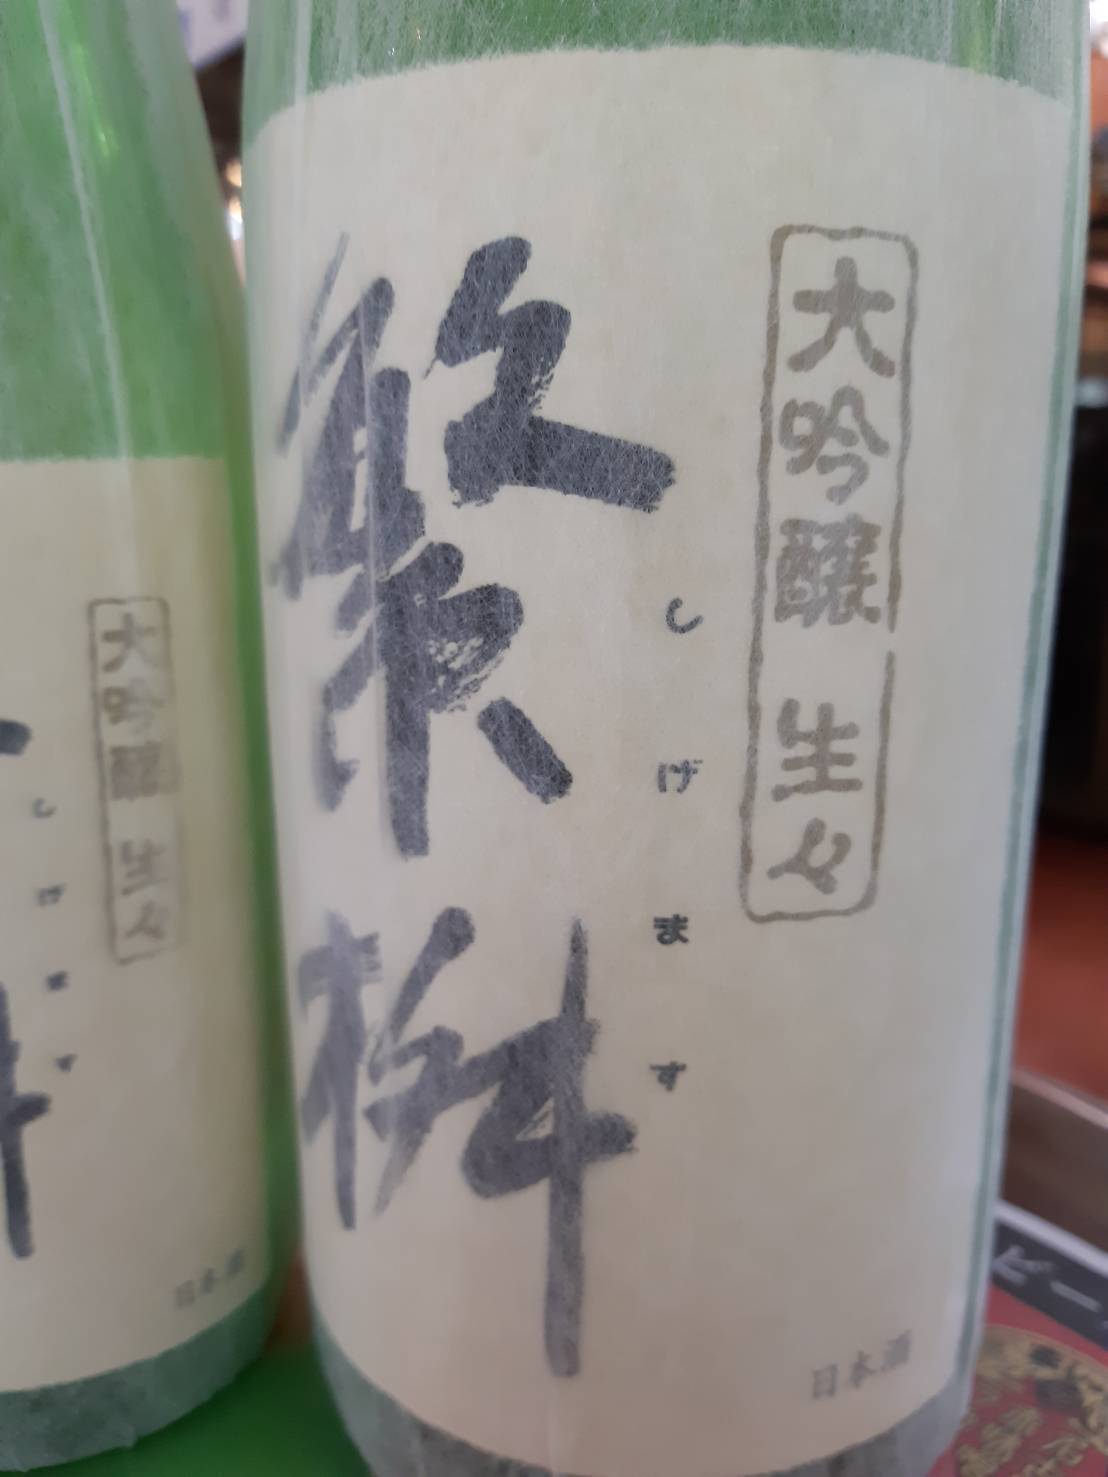 大吟醸 生々
しげます
繁桝
日本酒
大吟醸 生々
しげます
日本酒
ビー